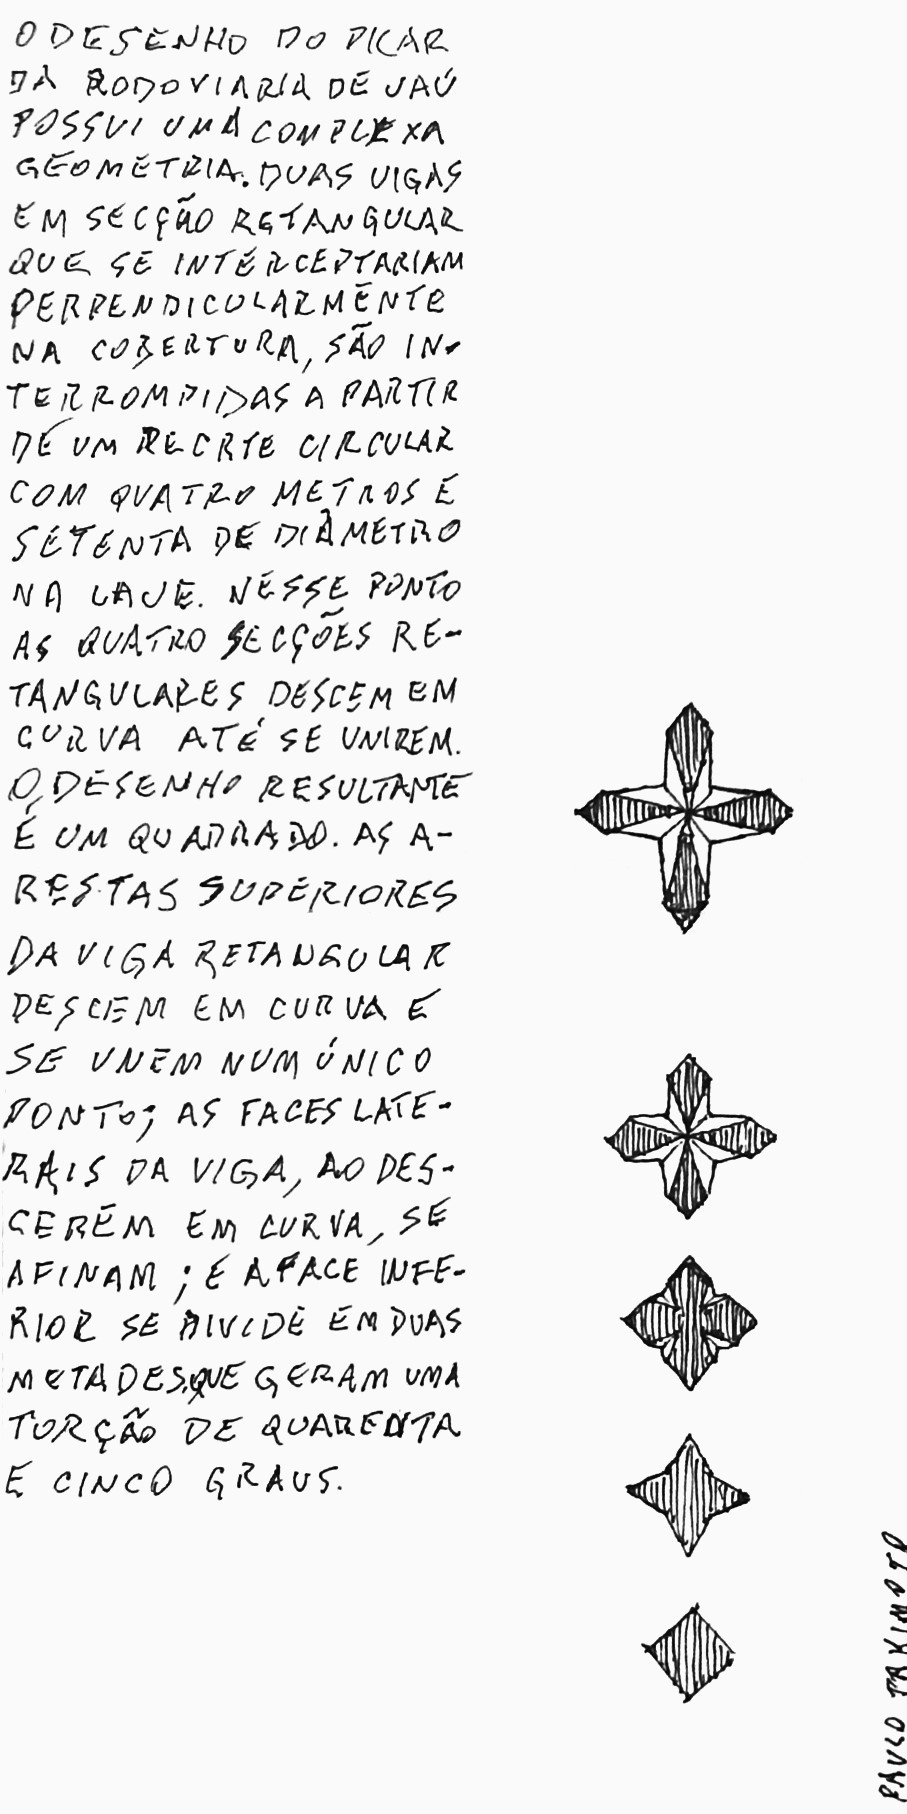 O DESENHO DO PILAR
DA RODOVIARIA DE JAÚ
POSSUI UMA COMPLEXA
GEOMETRIA. DUAS VIGAS
EM SECÇÃO RETANGULAR
QUE SE INTERCEPTARIAM
PERPENDICULARMENTE
NA COBERTURA, SÃO IN-
TERROMPIDAS A PARTIR
DE UM RECRTE CIRCULAR
COM QUATRO METROS E
SETENTA DE DIÂMETRO
NA LAJE. NESSE PONTO
AS QUATRO SECÇÕES RE-
TANGULARES DESCEM EM
CURVA ATÉ SE UNIREM.
O DESENHO RESULTANTE
É UM QUADRADO. AS A-
RESTAS SUPERIORES
DA VIGA RETANGULAR
DESCEM EM CURVA E
SE UNEM NUM ÚNICO
PONTO; AS FACES LATE-
RAIS DA VIGA, AO DES-
CEREM EM CURVA, SE
AFINAM; E A FACE INFE-
RIOR SE DIVIDE EM DUAS
METADES, QUE GERAM UMA
TORÇÃO DE QUARENTA
E CINCO GRAUS.
PAULO TAKIMOTO